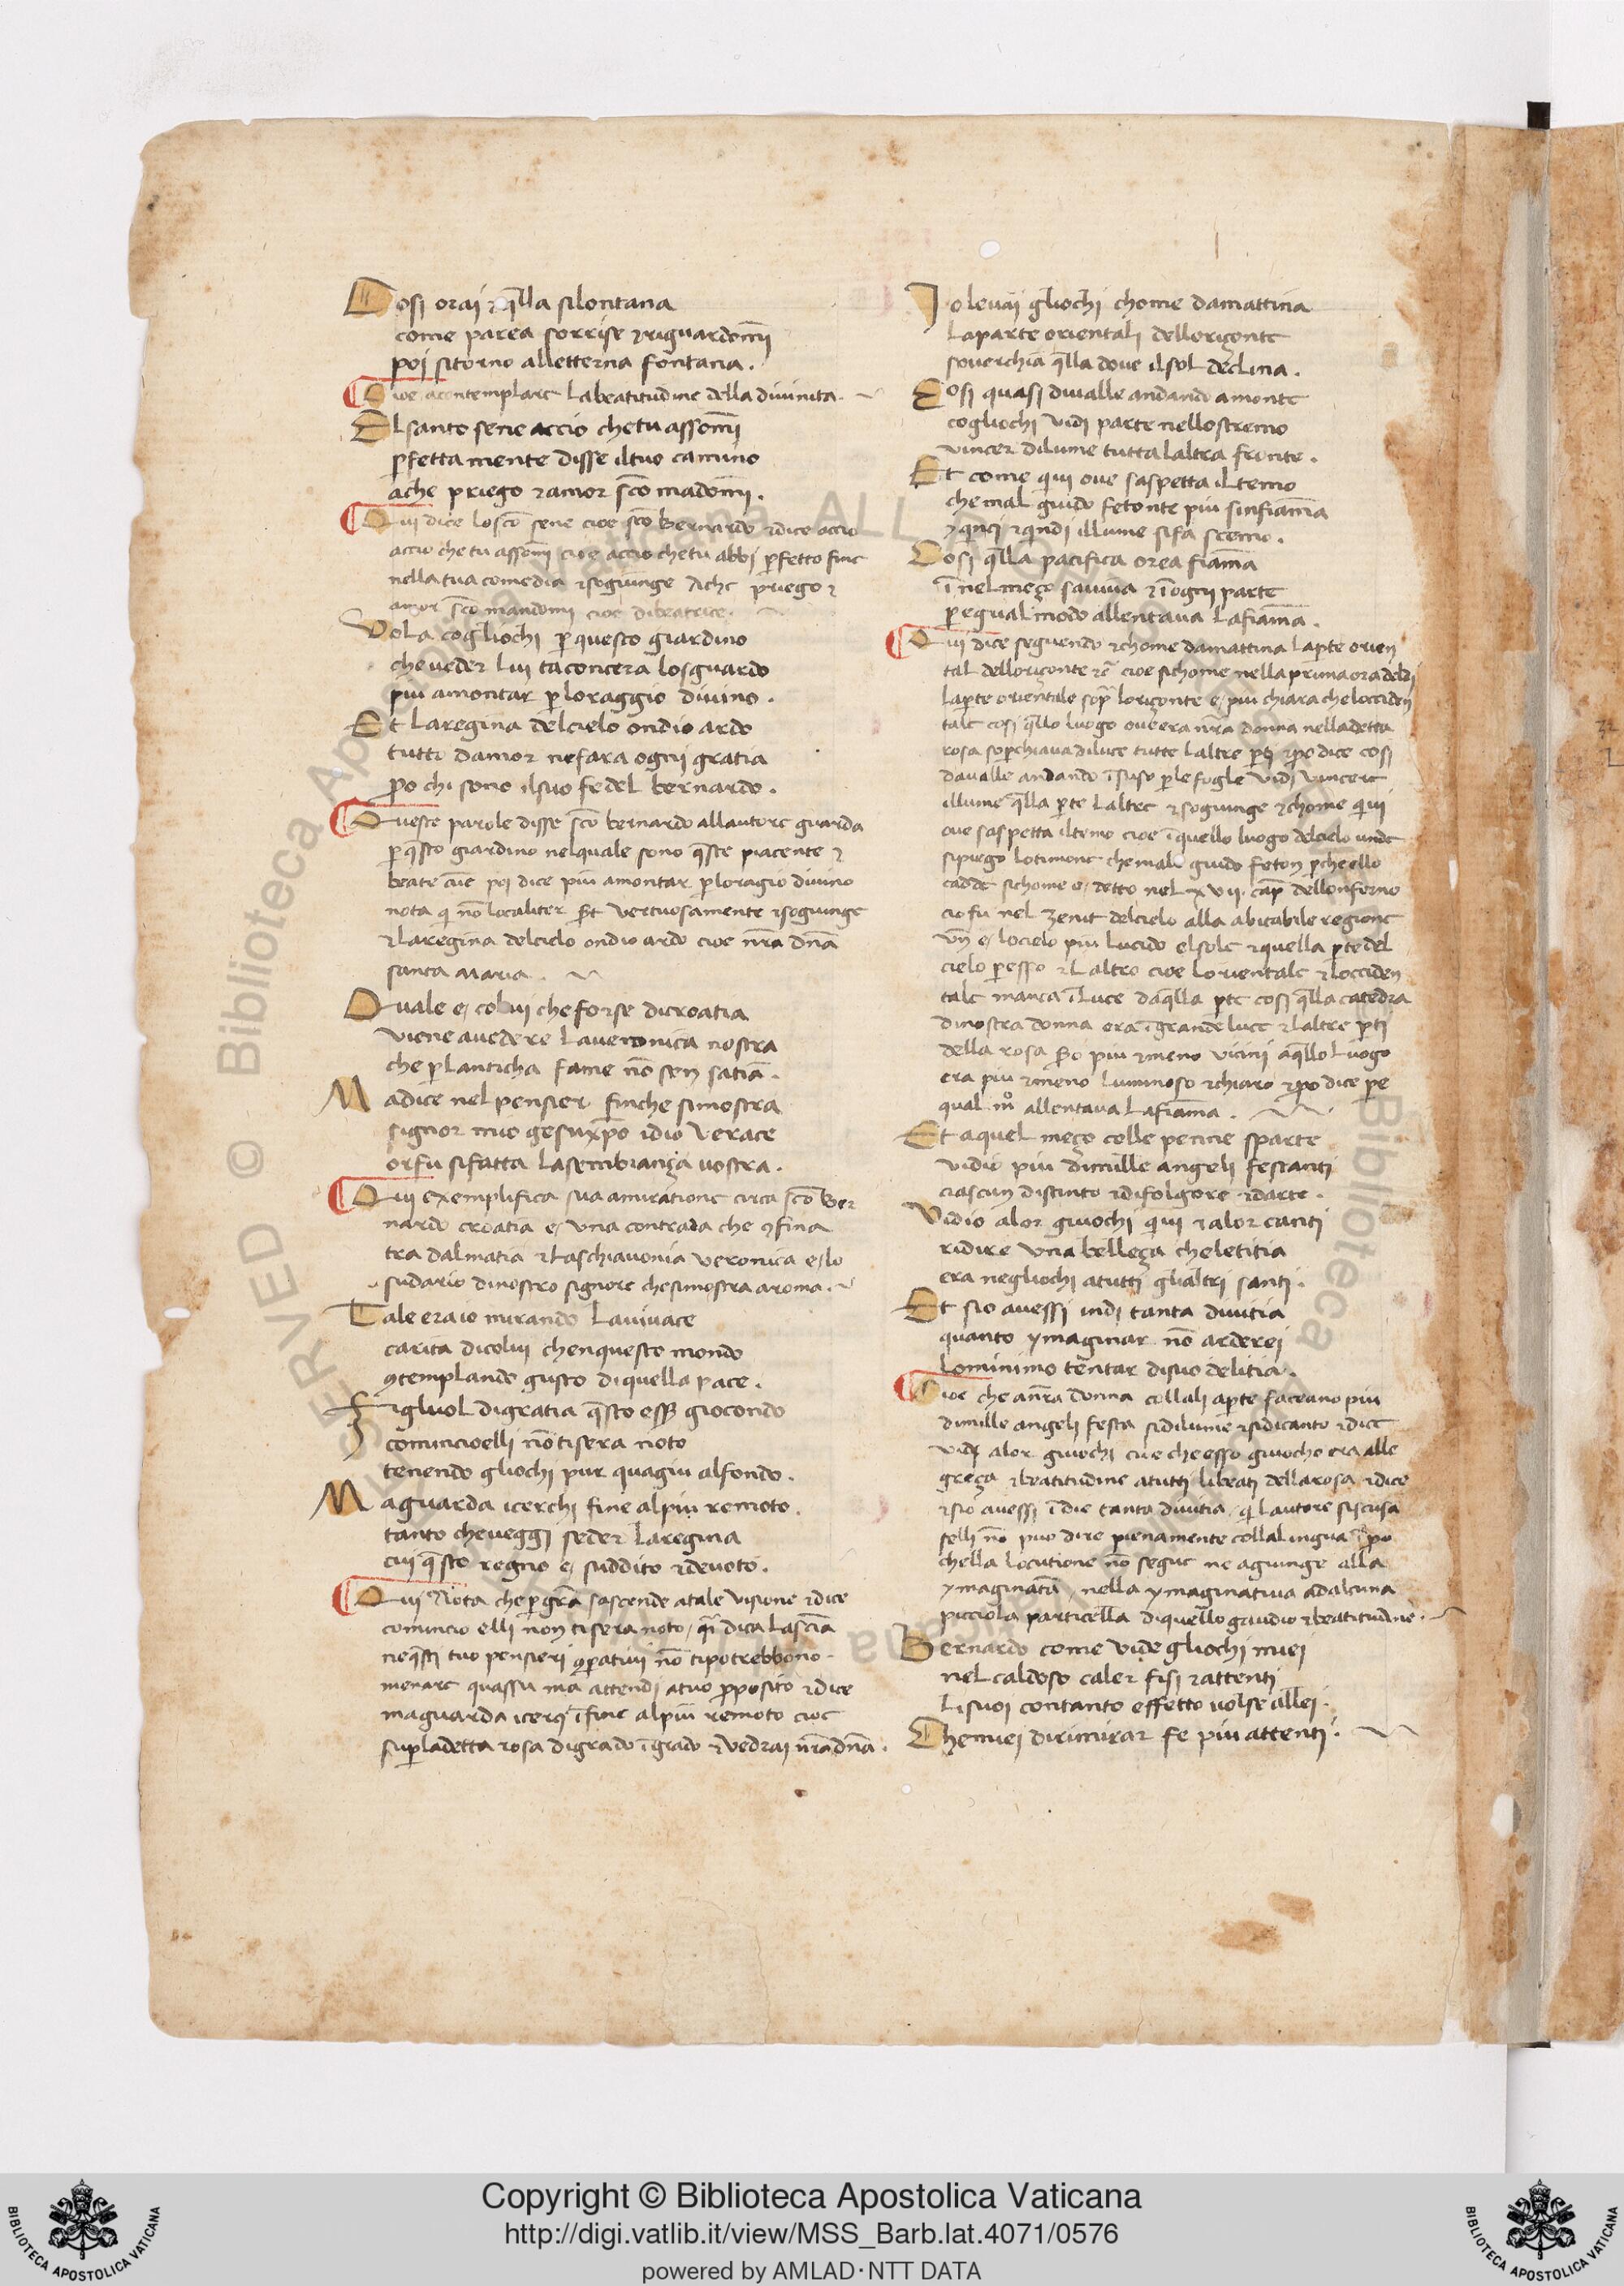 Cosi orai & q̄lla silontana
come parea sorrise & riguardom̄i
poi sitorno alletterna fontana .
Cioe acontemplare labeatitudine della diuinita .
El santo sene accio chetu assom̄i
ꝑfettamente disse iltuo camino
ache priego & amor sc̄o madom̄i .
Qui dice losc̄o sene cioe sc̄o Bernardo & dice accio
accio che tu assom̄i cioe accio chetu abbi ꝑfetto fine
nella tua comedia & sogiunge Ache priego &
amor sc̄o mandomi cioe dibeatrice .
Vola cogliochi ꝑ questo giardino
che ueder lui taconcera losguardo
piu amontar ꝑ loraggio diuino .
Et laregina delcielo ondio ardo
tutto damor nefara ogni gratia
ꝑo chi sono ilsuo fedel bernardo .
Queste parole disse sc̄o bernardo allautore guarda
ꝑ q̄sto giardino nelquale sono q̄ste piacente &
beate aīe poi dice piu amontar ꝑ loragio diuino
nota q̄ nō localiter s̄t vertuosamente & sogiunge
& laregina delcielo ondio ardo cioe nr̄a dn̄a
santa Maria .
Quale e colui che forse dicroatia
viene auedere laueronica nostra
che ꝑ lanticha fame nō sen satia .
Madice nel pensier finche simostra
signor mio gesu xp̄o idio verace
or fu sifatta lasembiança uostra .
Qui exemplifica sua amiratione circa sc̄o Ber
nardo croatia e una contrada che ꝯfina
tra dalmatia & laschiauonia veronica e lo
sudario dinostro signore chesimostra aroma .
Tale eraio mirando lauiuace
carita dicolui chenquesto mondo
ꝯtemplando gusto diquella pace .
Figluol digratia q̄sto ess̄ giocondo
comincioelli nō tisera noto
tenendo gliochi pur quagiu alfondo .
Maguarda icerchi fine alpiu remoto .
tanto cheueggi seder laregina
cui q̄sto regno e suddito & deuoto .
Qui Nota che ꝑ gr̄a sascende atale visione & dice
comincio elli non tisera noto / q̄i dica lascīa
neq̄sti tuo pensieri oꝑatiui nō tipotrebbono
menare quassu ma attendi atuo ꝓposito & dice
maguarda icerq̄ īfine alpiu remoto cioe
suꝑ ladetta rosa digrado ī grado & vedrai nr̄a dn̄a .
Io leuai gliochi chome damattina
laparte orientali delloriçonte
souerchia q̄lla doue ilsol declina .
Cosi quasi diualle andando amonte
cogliochi vidi parte nellostremo
vincer dilume tutta laltra fronte .
Et come qui oue saspetta iltemo
che mal guido fetonte piu sinfiam̄a
& q̄nci & q̄ndi illume sifa scemo .
Cosi q̄lla pacifica orea fiam̄a
ī nel meço sauiua & ī ogni parte
ꝑ equal modo allentaua lafiam̄a .
Qui dice seguendo & chome damattina laꝑte orien
tal delloriçonte &c̄ cioe sichome nella prima ora deldi
laꝑte orientale sopra loriçonte e piu chiara che locciden
tale cosi q̄llo luogo ouera nr̄a donna nelladetta
rosa soꝑchiaua diluce tutte laltre ꝑti & ꝑo dice cosi
daualle andando ī suso ꝑ le fogle vidi vincere
illume q̄lla ꝑte laltre & sogiunge & chome qui
oue saspetta iltemo cioe ī quello luogo delcielo unde
sipiego lotimone che mal guido feton ꝑche ello
cadde sichome e detto nel xvii . cap̄ dellonferno
cio fu nel zenit delcielo alla abitabile regione
vn̄ e locielo piu lucido el sole & quella ꝑte del
cielo ꝑ esso & laltro cioe lorientale & locciden
tale manca ī luce daq̄lla ꝑte cosi q̄lla catedra
dinostra donna era ī grande luce & laltre ꝑti
della rosa s̄o piu & meno vicini aq̄llo luogo
era piu & meno luminoso & chiaro & ꝑo dice ꝑ e
qual mo allentaua lafiam̄a .
Et aquel meço colle penne sparte
vidio piu dimille angeli festanti
ciascun distinto & difolgore & darte .
Vidio alor giuochi qui & alor canti
ridire una belleça cheletitia
era negliochi atutti glialtri santi .
Et sio auessi indi tanta diuitia
quanto ymaginar nō arderei
lominimo tentar disuo delitia .
Cioe che anr̄a donna collali aperte faceano piu
dimille angeli festa sidilume & sidicanto & dice
vidi alor giuochi cioe che esso giuocho era alle
greça & beatitudine atutti libeati dellarosa & dice
& sio auessi ī dire tanta diuitia / qi lautore siscusa
selli nō puo dire pienamente collalingua īꝑo
chella locutione nō segue ne agiunge alla
ymaginata / nella ymaginatiua adalcuna
picciola particella diquello gaudio & beatitudine .
Bernardo come vide gliochi miei
nel caldoso caler fisi & attenti
lisuoi contanto effetto uolse allei .
Chemiei dirimirar fe piu attenti .
Copyright © Biblioteca Apostolica Vaticana
http://digi.vatlib.it/view/MSS_Barb.lat.4071/0576
powered by AMLAD·NTT DATA
BIBLIOTECA APOSTOLICA VATICANA
BIBLIOTECA APOSTOLICA VATICANA